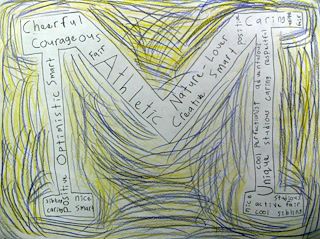 Cheerful
Courageous
fair
Athletic
Nature Lover
Creative Smart
positive
Caring
active
fair
Positive Optimistic Smart
sibling
caring
nice
smart
Unique studious caring respectful
cool perfectionist adventurous
nice
cool
active
studious
fair
sibling